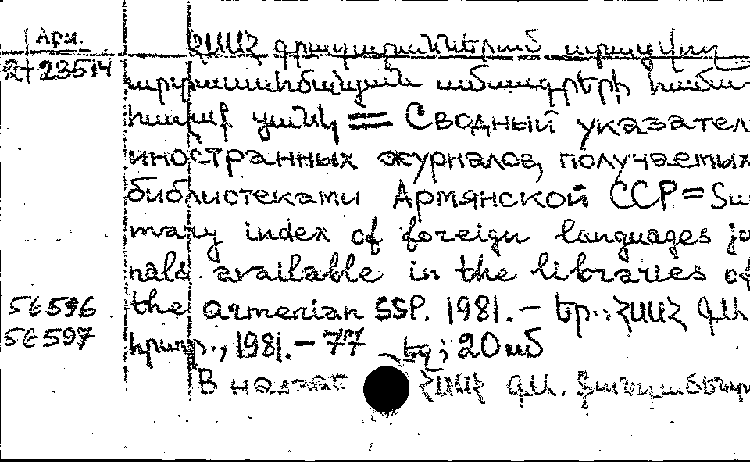 Арм.
2+23514
ՀՍՍՀ գրադարաններում ստացվող
արտասահմանյան ամսագրերի համա
հավաք ցանկ = Сводный указател
иностранных журналов, получаемых
библиотеками Армянской ССР = Sum
mary index of foreign languages jo
nals available in the libraries of
56596 the armenian SSP. 1981. – Եր.: ՀՍՍՀ ԳԱ
56597 հրատ., 1981. – 77 էջ; 20 սմ
В ՀՍՍՀ ԳԱ.